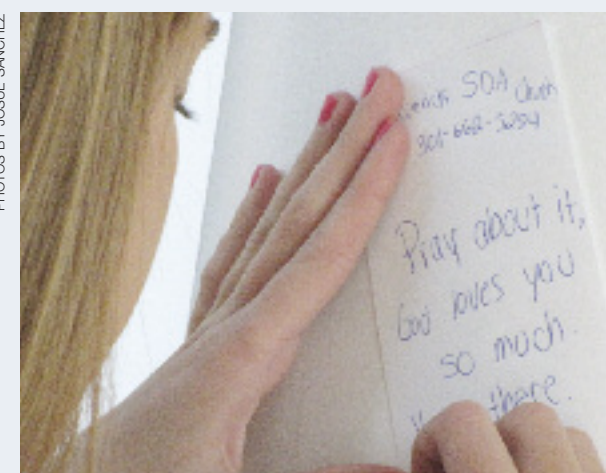 PHOTOS BY JOSUÉ SÁNCHEZ
SDA Church
Pray about it,
God loves you
so much.
there.